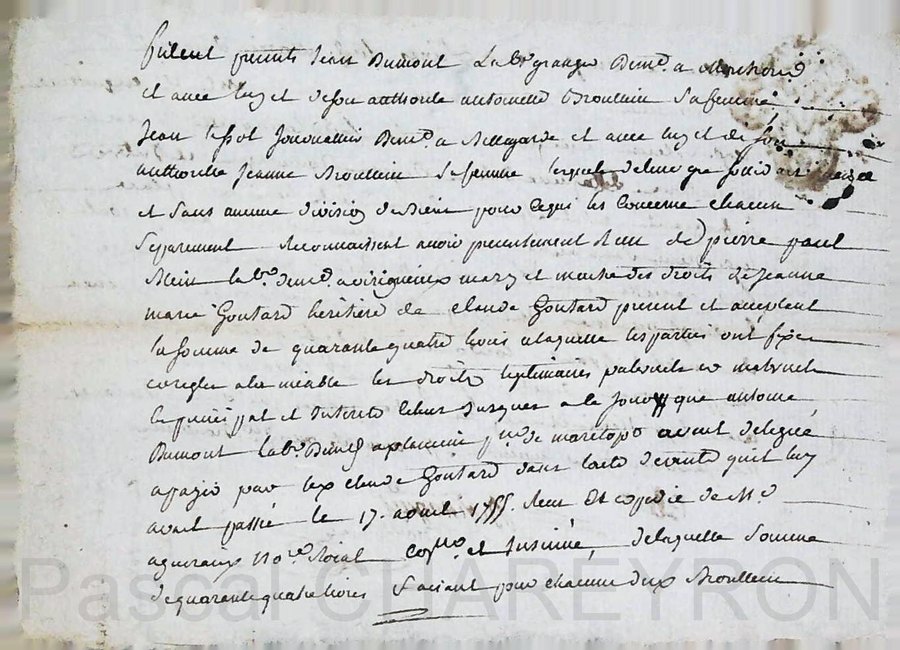 furent presents Jean Dumont Lab.r granger Dem.t a
et avec luy et de son authorité antoinette Broullein sa femme
Jean Dem.t a Bellegarde et avec luy et de son
authorité Jeanne Broullein sa femme lesquels de leur gre
et sans aucune division de biens pour ce qui les concerne chacun
separement reconnaissent avoir presentement Receu de pierre paul
lab.r dem.t a virigneux mary et maitre des droits de Jeanne
marie Goutard heritiere de claude Goutard present et acceptant
la somme de quarante quatre livres a laquelle les parties ont fixer
et regler a lamiable les droits legitimaires paternels et maternels
le principal et Interets Jusques a ce Jour que antoine
Dumont lab.r Dem.t p.sse de avait delegué
a payer par claude Goutard dans l'acte de vente quil luy
avait passée le 17. avril 1755. Receu Et copie de M.e
no.re Roial et Insinué, de laquelle somme
de quarante quatre livres faisant pour chacune deux Broullein
Pascal CHAREYRON